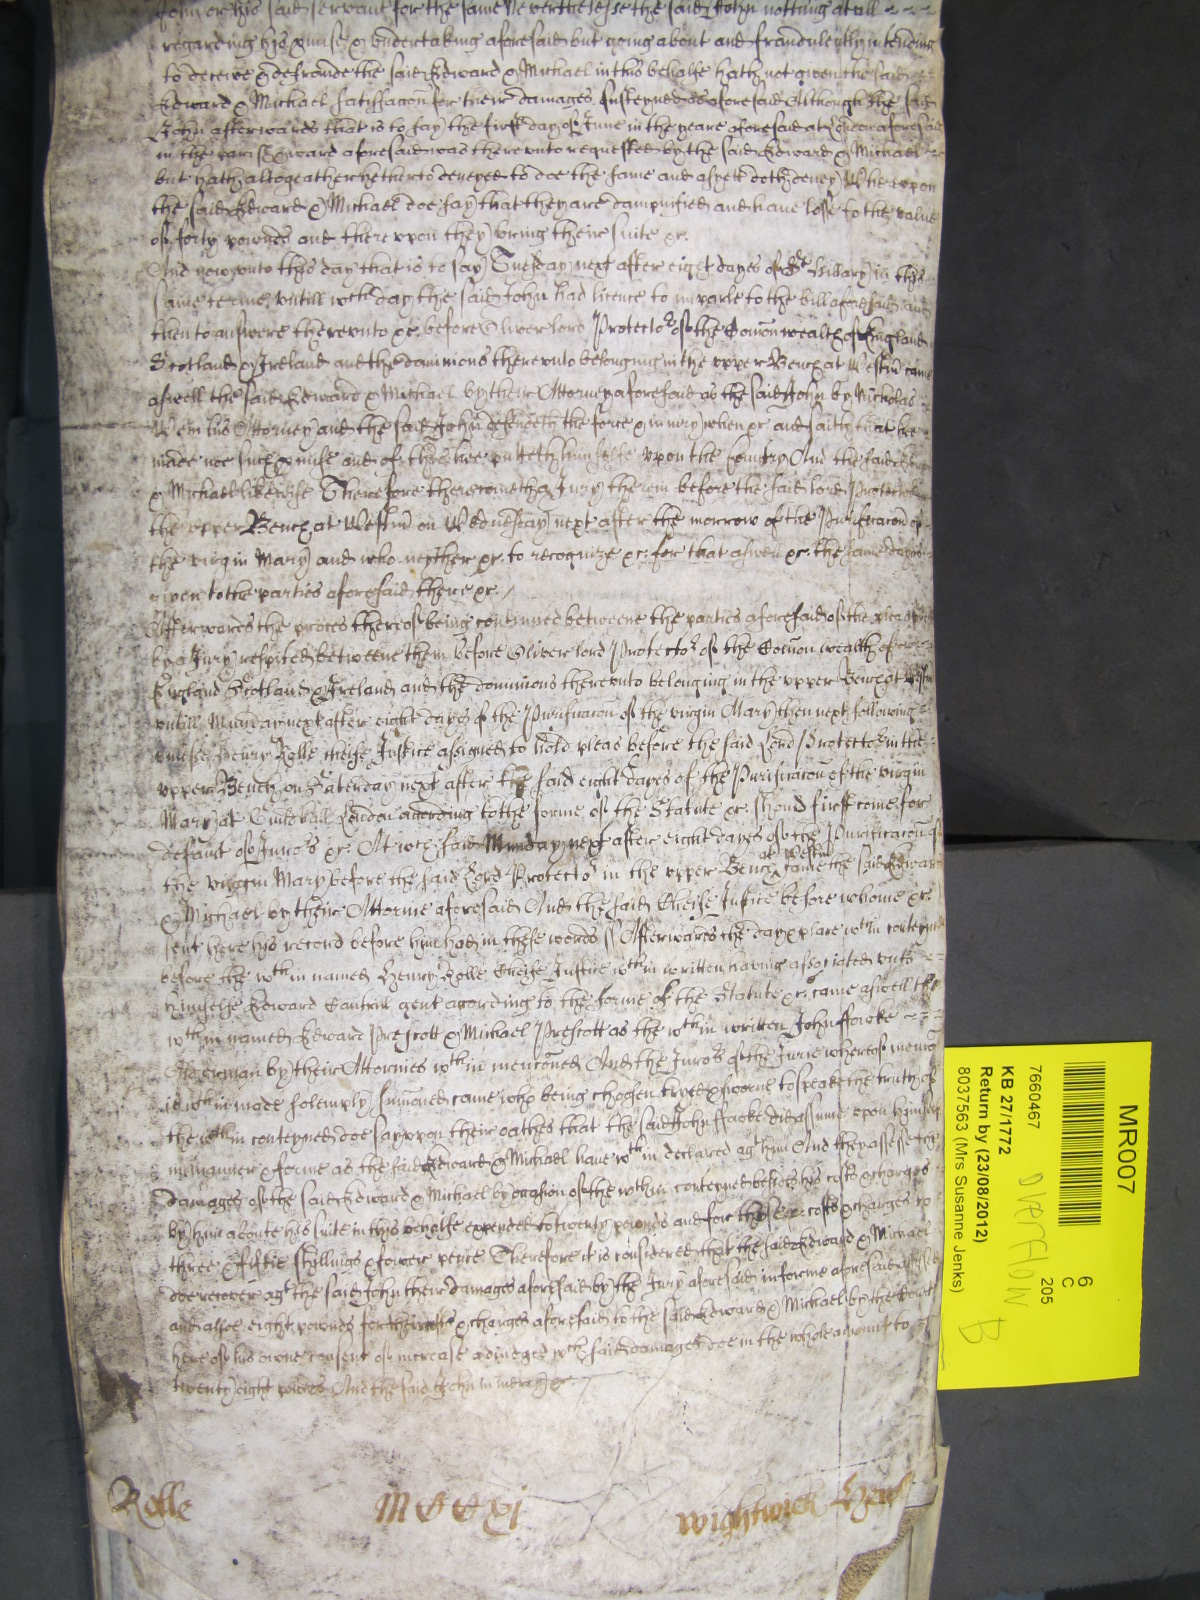 John or his said servant for the same Neverthelesse the said John nothing at all
regarding his pmise & undertaking aforesaid but going about and fraudulently intending
to deceive & defraude the said Edward & Michael in this behalfe hath not given the said
Edward & Michael satisfaccon for their damages susteyned as aforesaid Although the said
John afterwards that is to say the first day of June in the yeare aforesaid at London aforesaid
in the parish & ward aforesaid was thereunto requested by the said Edward & Michael
but hath altogeather hetherto denyed to doe the same and as yett doth deney Whereupon
the said Edward & Michael doe say that they are dampnified and have losse to the value
of forty pownds and thereupon they bring their suite &c.
And now unto this day that is to say Tuesday next after eight dayes of St Hillary in this
same terme untill wch day the said John had licence to imparle to the bill aforesaid and
then to answere thereunto &c. before Oliver lord Protector of the Comon wealth of England
Scotland & Ireland and the dominions thereunto belonging in the upper Bench at Westm came
aswell the said Edward & Michael by their Attorney aforesaid as the said John by Nicholas
his Attorney and the said John defendeth the force & iniury when &c and saith that hee
made noe such pmise and of this hee putteth himselfe upon the Country And the said Edward
& Michael likewise Therefore there cometh a Jury therein before the said lord Protector
the upper Bench at Westm on Wednesday next after the morrow of the Purificacon of
the virgin Mary and who neyther &c. to recognize &c. for that aswell &c. the same day is
given to the parties aforesaid there &c.
Afterwards the proces thereof being continued betweene the parties aforesaid of the plea
by a Jury respited betweene them before Oliver lord Protector of the Comon wealth of
England Scotland & Ireland and the dominions thereunto belonging in the upper Bench at Westm
untill Munday next after eight dayes of the Purificacon of the virgin Mary then next following
unlesse Henry Rolle cheife Justice assigned to hold pleas before the said Lord Protector in the
upper Bench on Saterday next after the said eight dayes of the Purificacon of the virgin
Mary at Guildhall London acording to the forme of the Statute &c. should first come for
default of Jurors &c. At wch said Munday next after eight dayes of the Purificacon of
the virgin Mary before the said Lord Protector in the upper Bench at Westm came the said Edward
& Michael by their Attorney aforesaid And the said Cheife Justice before whome &c.
sent here his record before him had in these words ss Afterwards the day & place wthin conteyned
before the wthin named Henry Rolle Cheife Justice wthin written having associated unto
himselfe Edward gent acording to the forme of the Statute &c. came aswell the
wthin named Edward Prescott & Michael Prescott as the wthin written John ffowke
Alderman by their Attornies wthin menconed And the Jurors of the Jurie whereof mencon
is wthin made solemply sumoned came who being chosen tryed & sworne to speake the truth of
the wthin conteyned doe say upon their oathes that the said John ffowke did assume upon himselfe
in manner & forme as the said Edward & Michael have wthin declared agt him And they assesse the
damages of the said Edward & Michael by occasion of the wthin conteyned besides his costs & charges
by him aboute his suite in this behalfe expended to twenty pownds and for those costs & charges to
three & fiftie shyllings & fower pence Therefore it is considered that the said Edward & Michael
doe recover agt the said John their damages aforesaid by the Jury aforesaid in forme aforesaid assessed
and allsoe eight pownds for their costs & charges aforesaid to the said Edward & Michael by the Court
here of his owne consent of increase adiudged wch said damages doe in the whole amount to
twenty eight pownds And the said John in mercy &c.
Rolle MCCxj Wightwick
MR007
6
C
205
7660467
KB 27/1772
Return by (23/08/2012)
8037563 (Mrs Susanne Jenks)
OVERFLOW
B